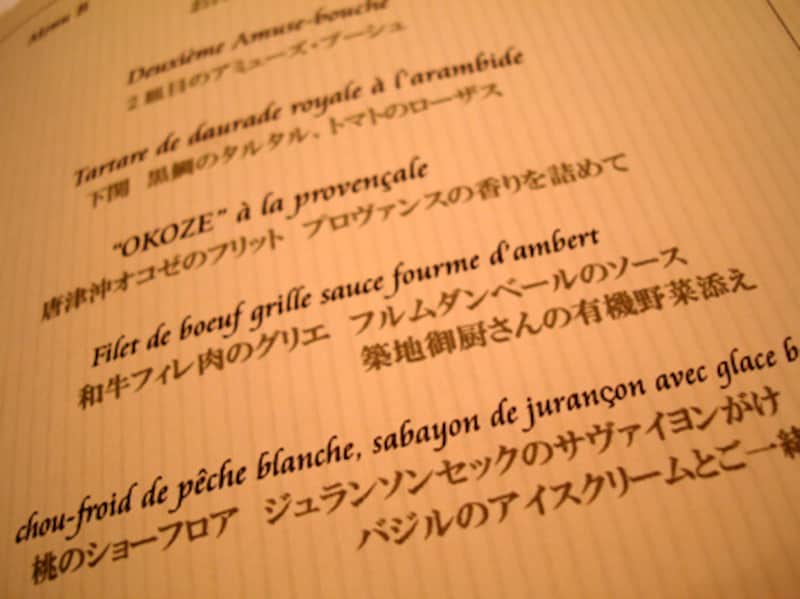 Menu B
Deuxième Amuse-bouche
2皿目のアミューズ・ブーシュ
Tartare de daurade royale à l'arambide
下関 黒鯛のタルタル、トマトのローザス
"OKOZE" à la provençale
唐津沖オコゼのフリット プロヴァンスの香りを詰めて
Filet de boeuf grille sauce fourme d'ambert
和牛フィレ肉のグリエ フルムダンベールのソース
築地御厨さんの有機野菜添え
chou-froid de pêche blanche, sabayon de jurançon avec glace b
桃のショーフロア ジュランソンセックのサヴァイヨンがけ
バジルのアイスクリームとご一緒